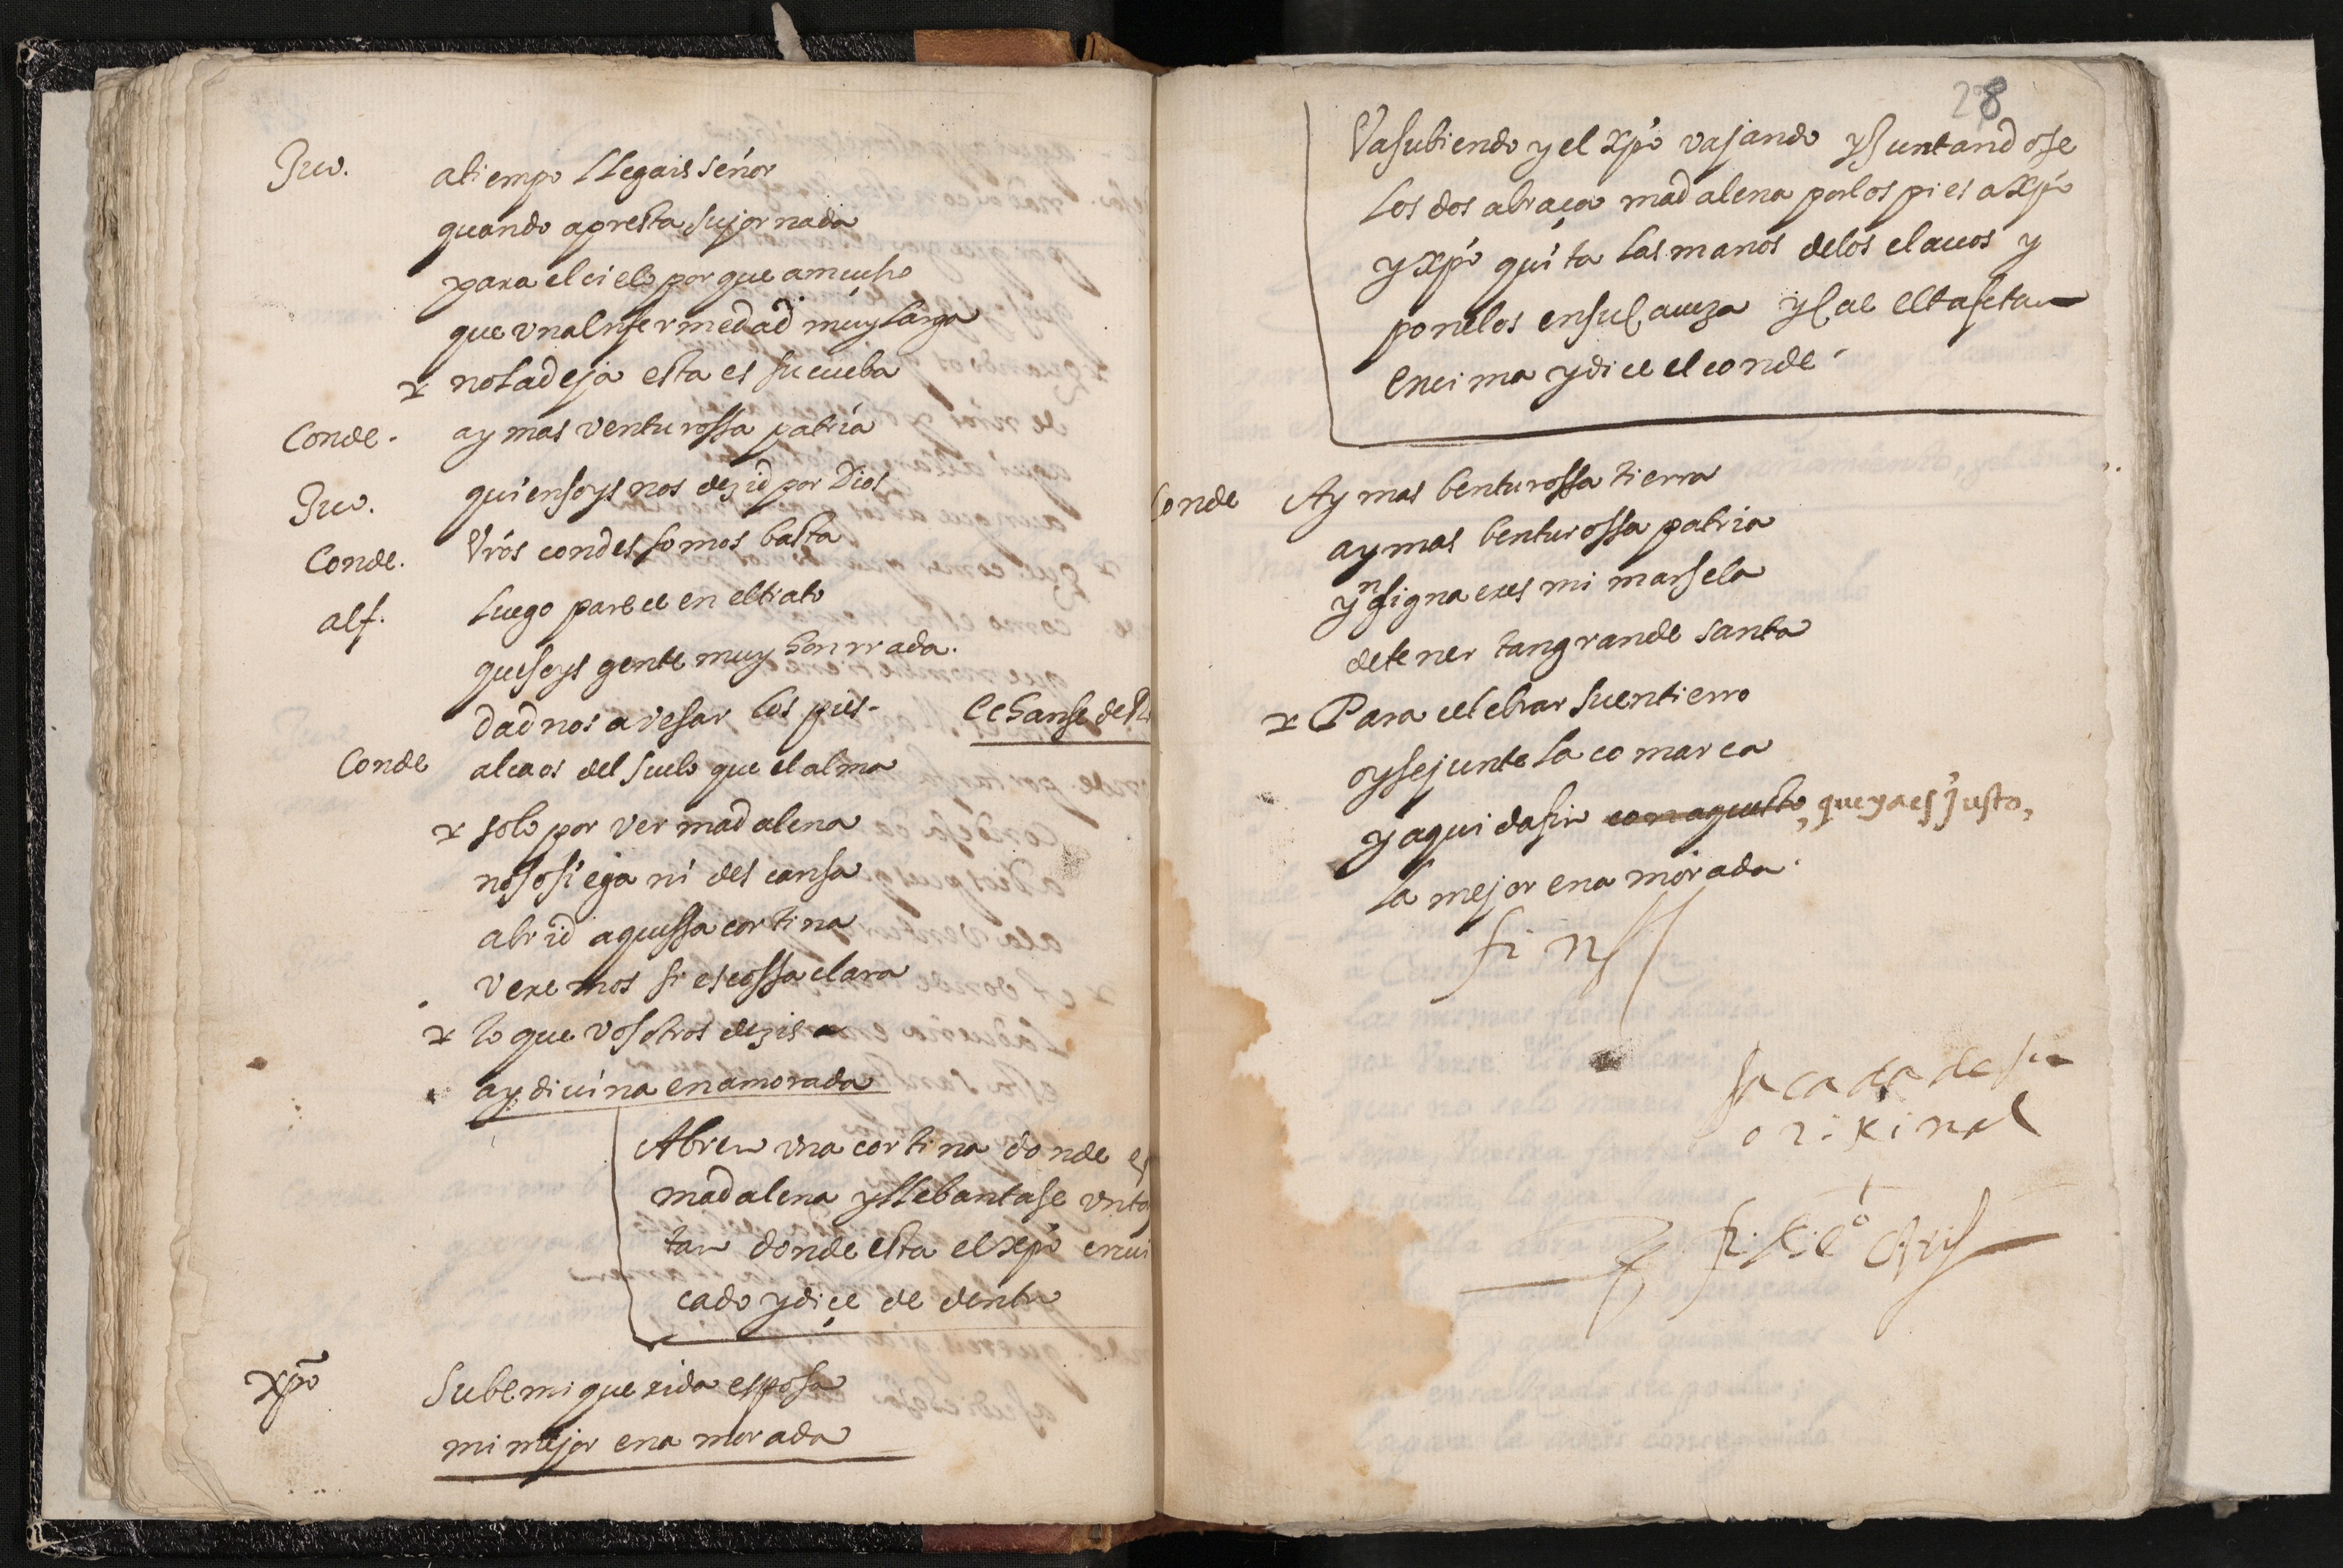 Juo. a tiempo llegais señor
quando apresta su jornada
para el cielo por que a mucho
que vna Infermedad muy larga
no la deja esta es su cueba
Conde. ay mas venturossa patria
Juo. quien soys nos dezid por Dios
Conde. Vrós condes somos basta
alf. luego parece en el trato
que soys gente muy honrrada.
dadnos a vesar los pies. Echanse de
Conde alcaos del suelo que el alma
solo por ver madalena
no sosiega ni descansa
abrid aquessa cortina
veremos si es cossa clara
lo que vosotros dezis
ay diuina enamorada
Abren vna cortina donde es
madalena y llebantase vn ta
tan donde esta el xpo cruci
cado y diçe de dentro
xpo Sube mi querida esposa
mi mejor enamorada
28
Va subiendo y el xpo vajando y Juntandose
los dos abraça madalena por los pies a xpo
y xpo quita las manos de los clauos y
ponelos en su caueza y cae el tafetan
encima y dice el conde
Conde Ay mas benturossa tierra
ay mas benturossa patria
ynsigna eres mi marsela
de tener tan grande santa
Para celebrar su entierro
oy se junte la comarca
y aqui da fin con aquesto, que ya es justo,
la mejor enamorada.
fin
sacada de su
orixinal